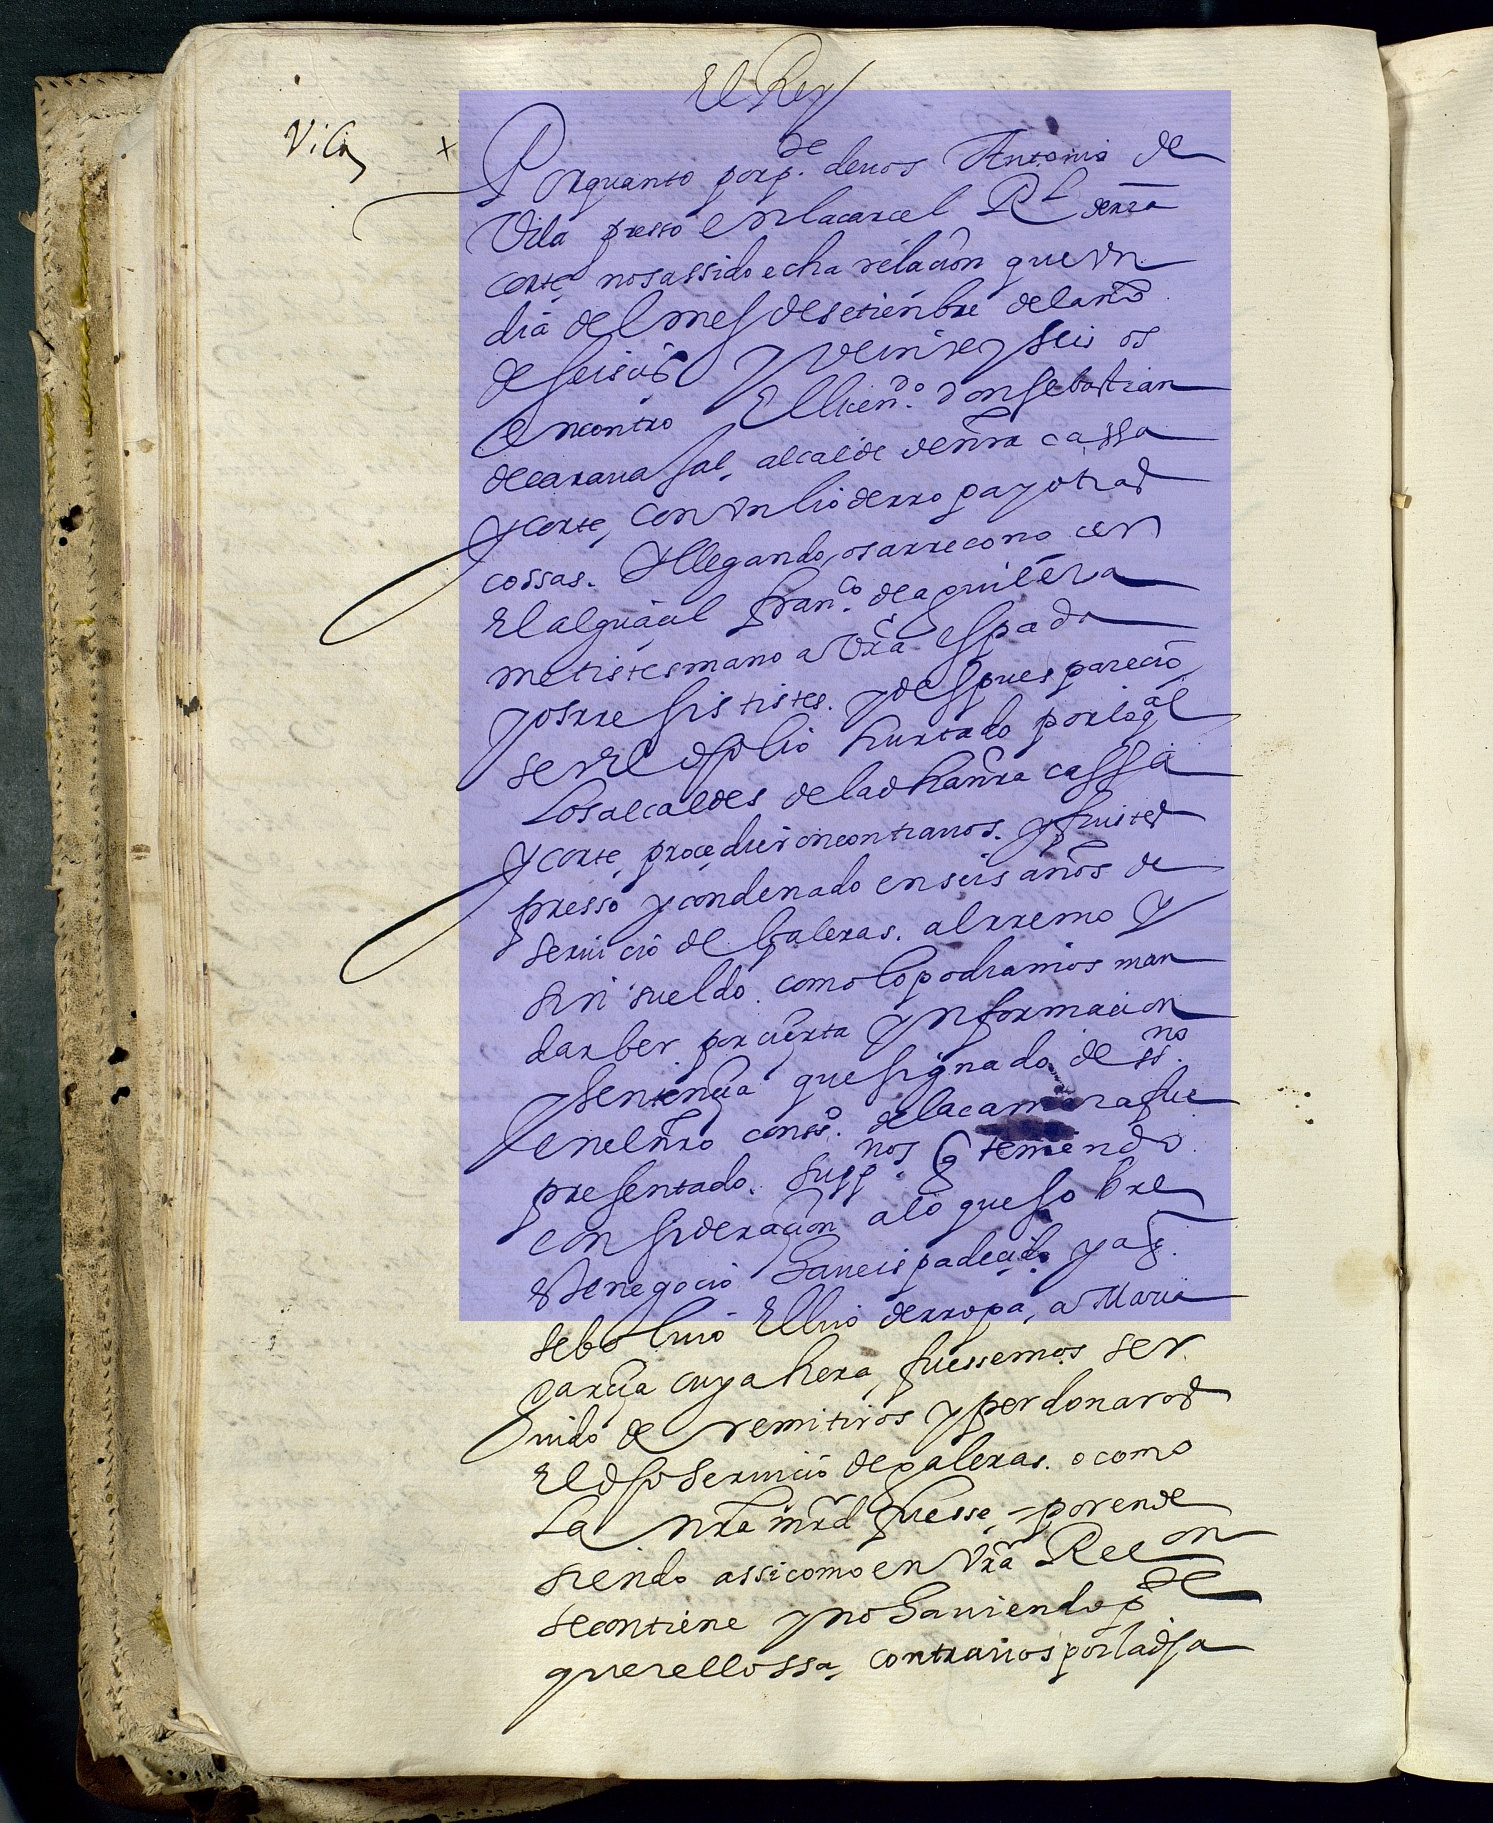 El Rey
Vila +
Porquanto porp.de devos Antonio de
Vila presso enlacarcel Rl denra
corte nosassido echa relaçion que Un
dia del mes desetienbre delaño
de seisos y veinte y seis os
encontro El licen.do don sebastian
decarauaJal, alcalde denra cassa
y corte, con Un lio derropa y otras
cossas. Y llegando, osarreconocer
El alguaçil fran.co deaguilera
metistesmano a Vra espada
y osrresististes. y despues pareçio
serel dho lio hurtado porloqual
Losalcaldes deladha nra cassa
y corte, proçedieron contrauos. y fuistes
presso y condenado enseis años de
seruiçio de Galeras. alrremo y
sin sueldo. como lo podiamos man
dar ber por çierta ynformaçion
y sentençia que signado de ss.no
enelnro cons.o delacamara fue
presentado. supp.nos q teniendo
consideraçion alo que sobre
este negoçio haueis padeçido y aq.
sebolbio El lio derropa, a Maria
garçia cuya hera, fuessemos ser
uido de remitiros y perdonaros
El dho seruiçio degaleras. o como
La nra mrd fuesse, - porende
siendo assicomo en Vra Reeon
secontiene y no hauiendo p.de
querellossa, contrauos por ladha